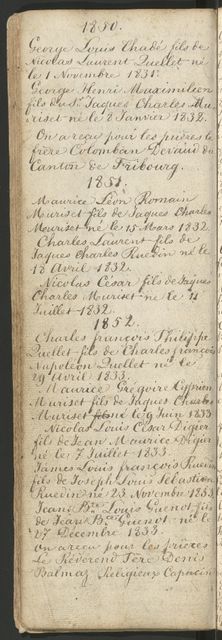 1850.
George Louis Chabé fils de
Nicolas Laurent Quellet né
le 1 Novembre 1831.
George Henri Maximilien
fils du Sr. Jaques Charles Mu,
riset né le 2 Janvier 1832.
On a reçu pour les prières le
frère Colomban Devaud du
Canton de Fribourg.
1851.
Maurice Léon Romain
Muriset fils de Jaques Charles
Muriset né le 15 Mars 1832.
Charles Laurent fils de
Jaques Charles Ruedin né le
18 Avril 1832.
Nicolas César fils de Jaques
Charles Muriset né le 4
Juillet 1832.
1852.
Charles françois Philippe
Quellet fils de Charles françois
Napoléon Quellet né le
29 Avril 1833.
Maurice Grégoire Cyprien
Muriset fils de Jaques Charles
Muriset né le 9 Juin 1833
Nicolas Louis César Digier
fils de Jean Maurice Digier
né le 7 Juillet 1833.
James Louis françois Ruedin
fils de Joseph Louis Sébastien
Ruedin né 23 Novembre 1833
Jean Bte. Louis Guenot fils
de Jean Bte. Guenot né le
27 Décembre 1833.
On a reçu pour les prières
Le Révérend Père Denis
Balmaz Religieux Capucin